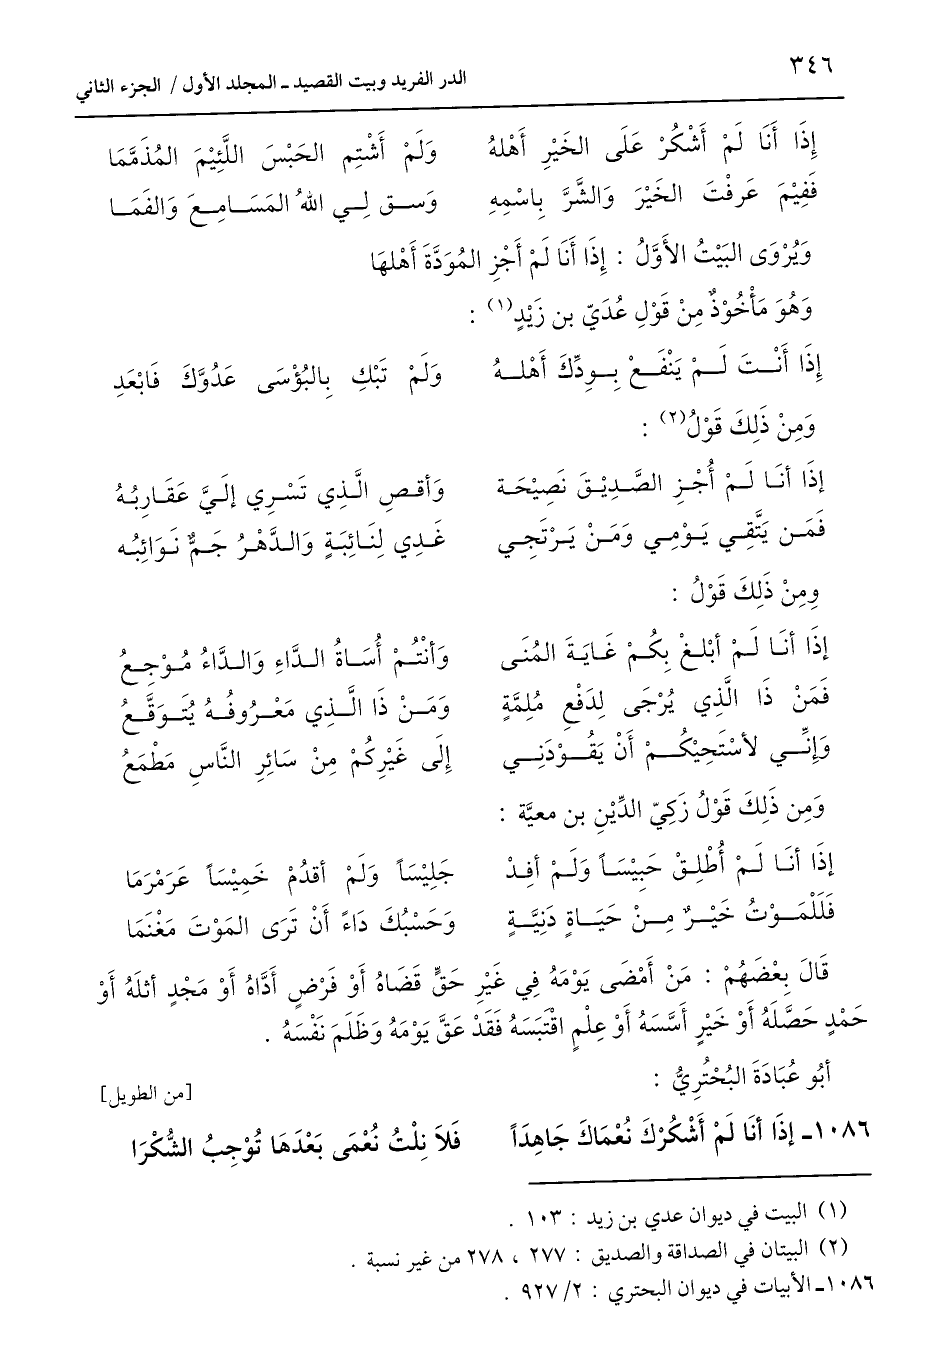 ٣٤٦
الدر الفريد وبيت القصيد ـ المجلد الأول / الجزء الثاني
إِذَا أَنَا لَمْ أَشْكُرْ عَلَى الخَيْرِ أَهْلَهُ وَلَمْ أَشْتِمِ الحَبْسَ اللَّئِيْمَ المُذَمَّمَا
فَفِيْمَ عَرفْتَ الخَيْرَ وَالشَّرَّ بِاسْمِهِ وَسـق لِـي اللهُ المَسَـامِـعَ وَالفَمَـا
وَيُرْوَى البَيْتُ الأَوَّلُ : إِذَا أَنَا لَمْ أَجْزِ المُوَدَّةَ أَهْلهَا
وَهُوَ مَأْخُوْذٌ مِنْ قَوْلِ عُدَيّ بن زَيْدٍ(١) :
إِذَا أَنْـتَ لَـمْ يَنْفَـعْ بِـودِّكَ أَهْلـهُ وَلَمْ تَبْكِ بِالبُؤْسَى عَدُوَّكَ فَابْعَدِ
وَمِنْ ذَلِكَ قَوْلُ(٢) :
إِذَا أنَـا لَـمْ أُجْـزِ الصَّـدِيْـقَ نَصِيْحَـة وَأقـصِ الَّـذِي تَسْـرِي إلَـيَّ عَقَـاربُـهُ
فَمَـن يَتَّقِـي يَـوْمِـي وَمَـنْ يَـرْتَجِـي غَـدِي لِنَـائِبَـةٍ وَالـدَّهْـرُ جَـمٌّ نَـوَائِبُـه
ومِنْ ذَلِكَ قَوْلُ :
إِذَا أنَـا لَـمْ أبْلـغْ بِكُـمْ غَـايَـةَ المُنَـى وَأنْتُـمْ أُسَـاةُ الـدَّاءِ وَالـدَّاءُ مُـوْجِـعُ
فَمَنْ ذَا الَّذِي يُرْجَى لِدَفْعِ مُلِمَّةٍ وَمَـنْ ذَا الَّـذِي مَعْـرُوفُـهُ يُتَـوَقَّـعُ
وَإِنِّـي لأسْتَحِيْكُـمْ أَنْ يَقُـوْدَنِـي إلَى غَيْرِكُمْ مِنْ سَائِرِ النَّاسِ مَطْمَعُ
وَمِن ذَلِكَ قَوْلُ زَكِيّ الدِّيْنِ بن معيَّة :
إِذَا أنَـا لَـمْ أُطْلِـقْ حَبِيْسَـاً وَلَـمْ أفِـدْ جَلِيْسَاً وَلَمْ أقدُمْ خَمِيْسَاً عَرَمْرَمَا
فَلَلْمَـوْتُ خَيْـرٌ مِـنْ حَيَـاةٍ دَنِيَّـةٍ وَحَسْبُكَ دَاءً أَنْ تَرَى المَوْتَ مَغْنَمَا
قَالَ بِعْضَهُمْ : مَنْ أَمْضَى يَوْمَهُ فِي غَيْرِ حَقٍّ قَضَاهُ أَوْ فَرْضٍ أَدَّاهُ أَوْ مَجْدٍ أثلَهُ أَوْ
حَمْدٍ حَصَّلَهُ أَوْ خَيْرٍ أَسَّسَهُ أَوْ عِلْمٍ اقْتَبَسَهُ فَقَدْ عَقَّ يَوْمَهُ وَظَلَمَ نَفْسَهُ .
أَبُو عُبَادَةَ البُحْتُرِيُّ :
[من الطويل]
١٠٨٦ـ إِذَا أنَا لَمْ أَشْكُرْكَ نُعْمَاكَ جَاهِدَاً فَلاَ نِلْتُ نُعْمَى بَعْدَهَا تُوْجِبُ الشُّكْرَا
(١) البيت في ديوان عدي بن زيد : ١٠٣ .
(٢) البيتان في الصداقة والصديق : ٢٧٧ ، ٢٧٨ من غير نسبة .
١٠٨٦ـ الأبيات في ديوان البحتري : ٢/ ٩٢٧ .